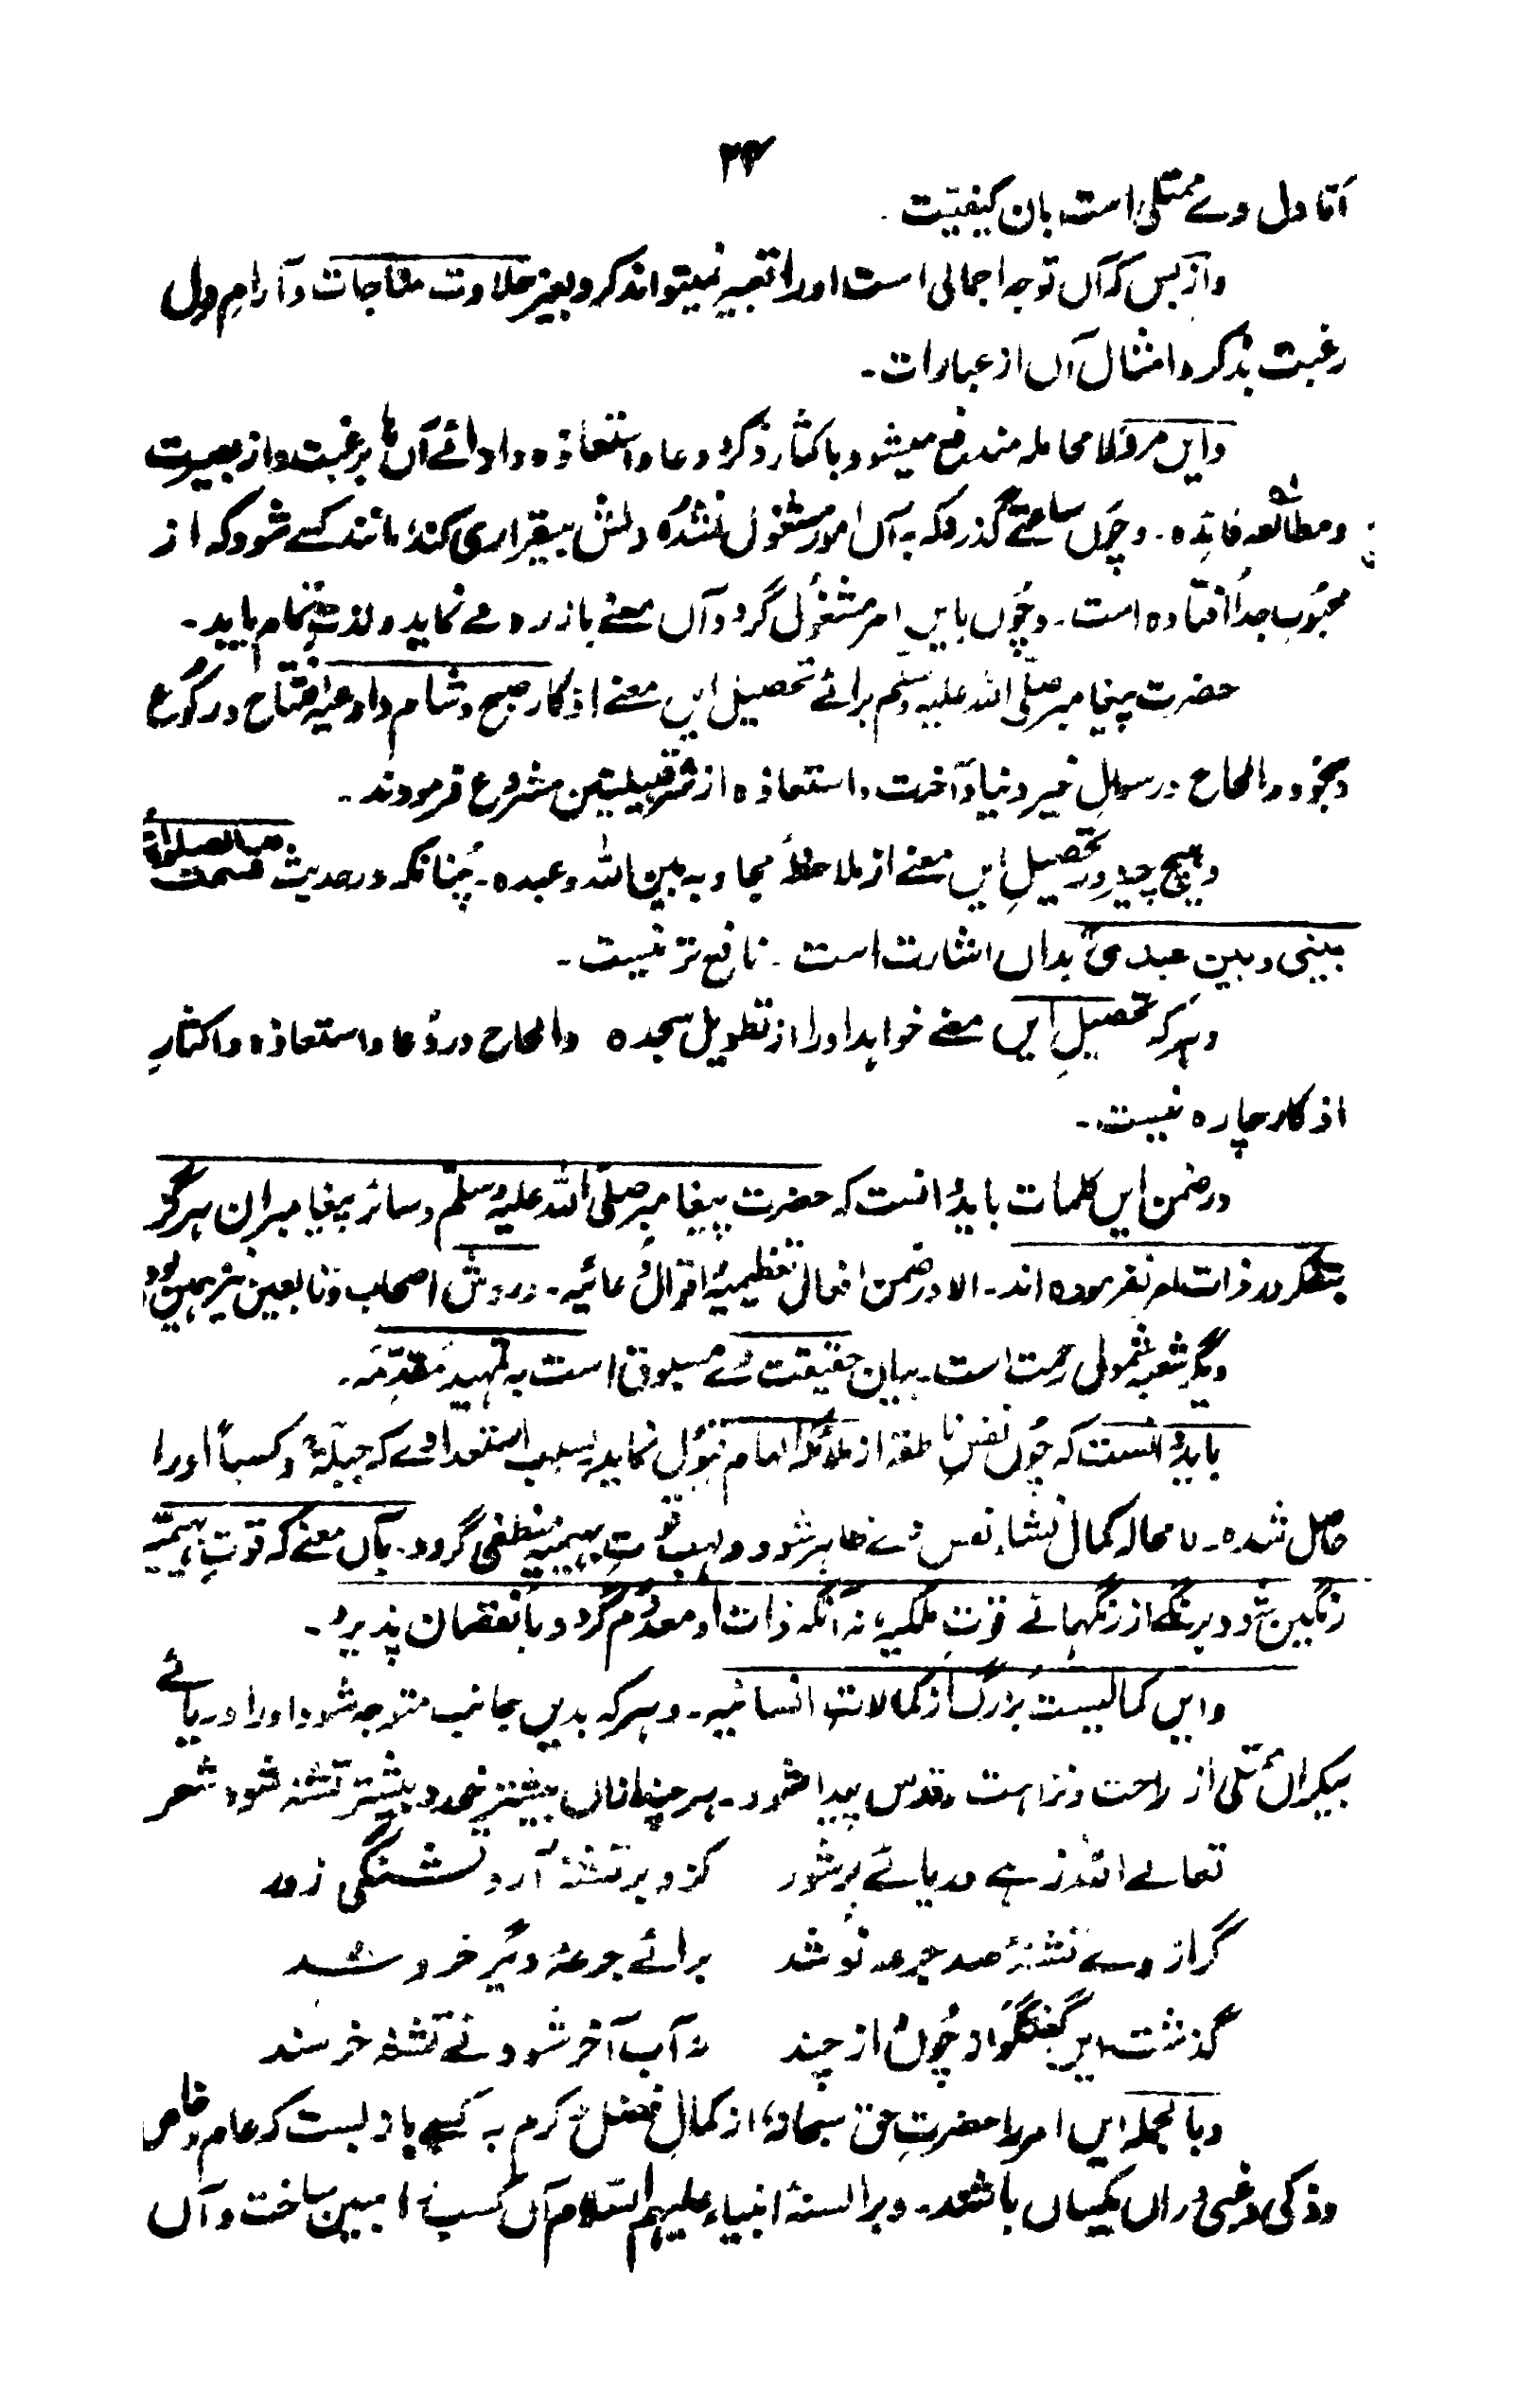 ۲۴
اما دل وے ممتلی است بان کیفیت
واز بس کہ آں توجہ اجمالی است اورا تعبیر نمیتواند کرد بغیر حلاوت مناجات و آرام دل
رغبت بذکر و امثال آں از عبارات۔
وایں مرد لا محالہ مندفع میشود باکثار ذکر و دعا و استعاذہ و ادائے آں ہا برغبت و از بصیرت
و مطالعہ فائدہ۔ وچوں ساعتے گذرد کہ بہ آں امور مشغول نشدہ دلش بیقراری کند مانند کسے شود کہ از
محبوب جدا افتادہ است۔ وچوں بایں امر مشغول گردد آں معنے باز روے نماید و لذت تمام یابد۔
حضرت پیغامبر صلی اللہ علیہ وسلم برائے تحصیل ایں معنے اذکار صبح و شام و ادعیہ افتتاح و رکوع
و سجود و الحاح در سوال خیر دنیا و آخرت و استعاذہ از شر قبیلتین مشروع فرمودند۔
وہیچ چیز در تحصیلِ ایں معنے از ملاحظہ مجاوبہ بین اللہ و عبدہ۔ چنانکہ در حدیث قسمت الصلوٰۃ
بینی وبین عبدی بداں اشارت است۔ نافع تر نیست۔
وہر کہ تحصیلِ ایں معنے خواہد اورا از تطویل سجدہ والحاح در دعا و استعاذہ و اکثارِ
اذکار چارہ نیست۔
در ضمن ایں کلمات باید دانست کہ حضرت پیغامبر صلی اللہ علیہ وسلم و سائر پیغامبران ہرگز
بتفکر در ذات امر نفرمودہ اند۔ الا در ضمن افعال تعظیمیہ و اقوال دعائیہ۔ و روش اصحاب و تابعین نیز ہمین بود
دیگر شعبہ شمول رحمت است۔ بیان حقیقت وے مسبوق است بہ تمہید مقدمہ۔
باید دانست کہ چوں نفس ناطقہ از ملائکہ الہام قبول نماید بسبب استعدادے کہ جبلۃً و کسباً اورا
حاصل شدہ۔ لا محالہ کمال نشاء نفس وے ظاہر شود و لہب قوتِ بہیمیہ منطفی گردد۔ بآں معنے کہ قوتِ بہیمیہ
رنگین شود برنگے از رنگہائے قوتِ ملکیہ، نہ آنکہ ذات او معدوم گردد یا نقصان پذیرد۔
وایں کمالیست بزرگ از کمالات انسانیہ۔ وہر کہ بدیں جانب متوجہ شود اورا دریائے
بیکراں ممتلی از راحت و نزاہت و قدس پیدا شود۔ ہر چند ازاں بیشتر خورد بیشتر تشنہ شود شعر
تعالےٰ اللہ زہے دریائے پر شور کزو بر تشنہ آرد تشنگی زور
گر ازوے تشنۂ صد جرعہ نوشد برائے جرعۂ دیگر خروشد
گذشت ایں گفتگو از چوں از چند نہ آب آخر شود نے تشنہ خرسند
وبالجملہ ایں امر را حضرتِ حق سبحانہ، از کمالِ فضل و کرم بہ کسے باز بست کہ عام و خاص
و ذکی و غبی دراں یکساں باشند۔ وبر السنۂ انبیاء علیہم السلام آں کسب را مبین ساخت و آں